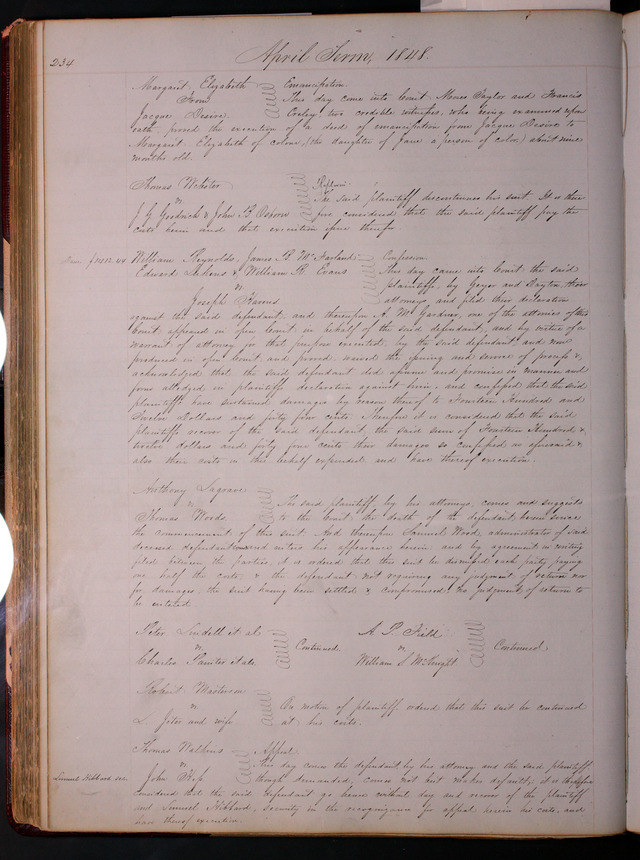 234
April Term, 1848.
Margaret Elizabeth
From
Jacque Desire.
Emancipation
This day came into Court, Moses Taylor and Francis
two credible witnesses, who being examined upon
oath, proved the execution of a deed of emancipation from Jacque Desire to
Margaret Elizabeth of colour, (the daughter of Jane a person of color) about nine
months old.
Thomas Webster
vs
J. G. Goodrich & John B. Osborn
The said plaintiff discontinues his suit. It is there
fore considered that the said plaintiff pay the
costs herein and that execution issue therefor
William Reynolds, James B. McFarland
Edward & William B. Evans
vs
Joseph
Confession
This day came into Court the said
plaintiffs, by Geyer and Dayton, their
attorneys, and filed their declaration
against the said defendant, and thereupon A. M. Gardner, one of the attornies of this
Court, appeared in open Court, on behalf of the said defendant, and by virtue of a
warrant of attorney for that purpose executed, by the said defendant, and now
produced in open Court and proved, waived the issuing and service of process &
acknowledged that the said defendant did assume and promise in manner and
form alledged in plaintiffs declaration against him, and confessed that the said
plaintiffs have sustained damages by reason thereof to Fourteen Hundred and
twelve Dollars and forty four cents. Therefore it is considered that the said
plaintiffs recover of the said defendant the said sum of Fourteen Hundred &
twelve dollars and forty four cents their damages so confessed as aforesaid &
also their costs in this behalf expended and have thereof execution.
Anthony Lagrave
vs
Thomas Woods,
The said plaintiff by his attorneys, comes and suggests
to the Court, the death of the defendant, herein since
the commencement of this suit. And thereupon Samuel Wood, administrator of said
deceased defendant and enters his appearance herein and by agreement in writing
filed between the parties, it is ordered that this suit be dismissed each party, paying
one half the costs, & the defendant not requiring any judgment of return nor
for damages, the suit having been settled & compromised no judgment of return to
be entered
Peter Lindell et al
vs
Charles et als.
Continued
A. P. Field
vs
William S. McKnight
Continued
Robert Masterson
vs
L. Jeter and wife
On motion of plaintiff ordered that this suit be continued
at his costs.
Thomas Watkins
vs
John
Appeal
Lemuel Hibbard sec.
This day comes the defendant, by his attorney and the said plaintiff
though demanded, comes not but makes default; it is therefore
considered that the said defendant go hence without day and recover of the plaintiff
and Lemuel Hibbard, security in the recognizance for appeal herein his costs, and
have thereof execution.